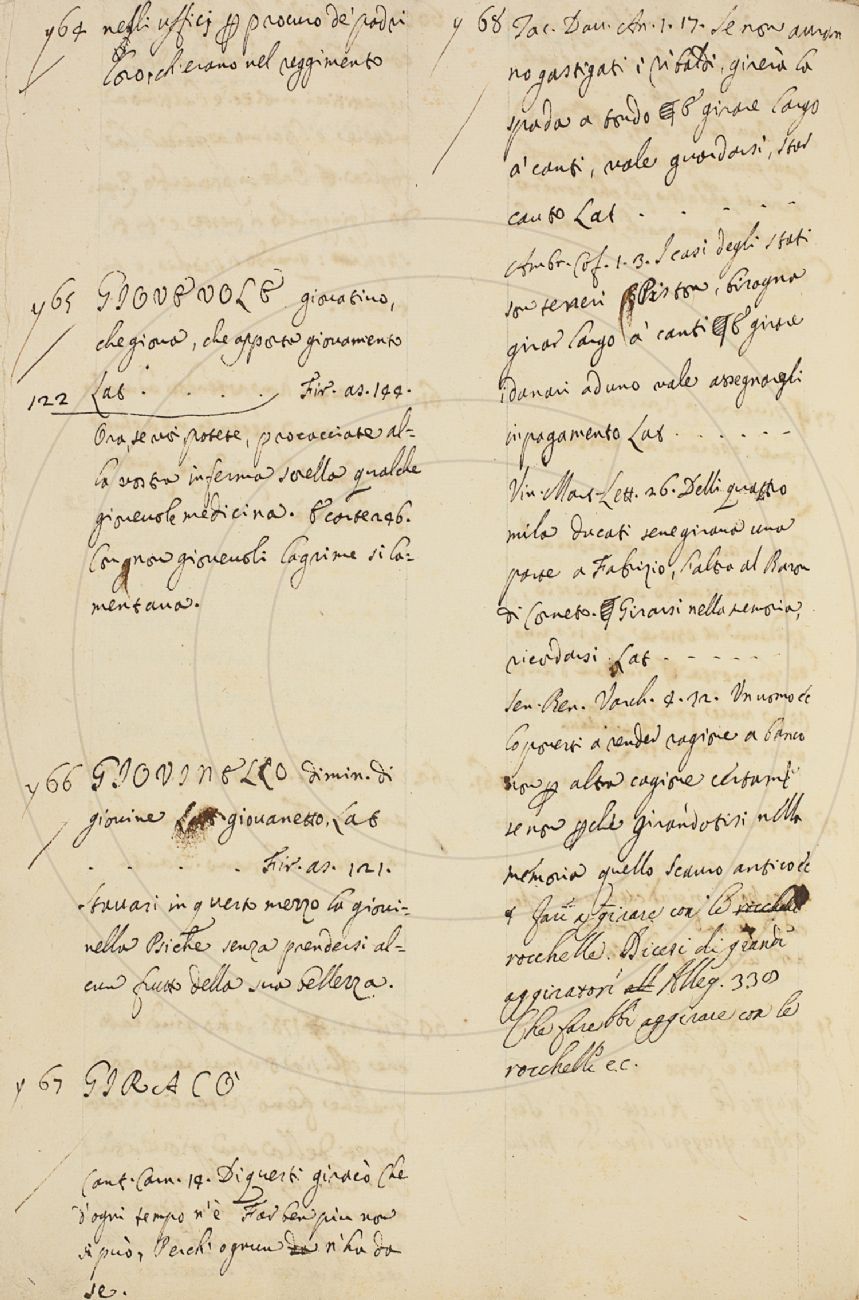 y 64 negli ufficj per procuro de' padri
loro, ch'erano nel reggimento
y 65 GIOVEVOLE giovativo,
che giova, che apporta giovamento
122 Lat . . . . Fir. as. 144.
Ora, se voi potete, procacciate al=
la vostra inferma sorella qualche
giovevole medicina. E carte 246.
Con non giovevoli lagrime si la=
mentava.
y 66 GIOVINELLO dimin. di
giovine giovanetto, Lat
. . . . Fir. as. 121.
Stavasi in questo mezzo la giovi=
nella Psiche senza prendersi al=
cun frutto della sua bellezza.
y 67 GIRACÒ
Cant. Carn. 14. Di questi giracò che
d'ogni tempo n'è Far ben piu non
si può, Perchè ognun n'ha da
se.
y 68 Tac. Dav. An. 1. 17. Se non avran
no gastigati i ribaldi, girerà la
spada a tondo § E girare largo
a' canti, vale guardarsi, star
cauto Lat . . . . .
Ambr. Cof. 1. 3. I casi degli stati
son teneri Piston, bisogna
girar largo a' canti § E girar
i danari ad uno vale assegnargli
in pagamento Lat . . . . . .
Vin. Mart. Lett. 26. Delli quattro
mila ducati se ne girava una
parte a Fabrizio, l'altra al Baron
di Corneto. § Girarsi nella memoria,
ricordarsi Lat - - - - -
Sen. Ben. Varch. 4. 32. Un uomo de
lo ponesti a render ragione a banco
non per altra cagione certamte
se non perchè girandotisi nella
memoria quello Scauro antico &c
aggirare con le rocchelle
rocchelle. Dicesi di grandi
aggiratori Alleg. 330
Che farebbe aggirare con le
rocchelle ec.